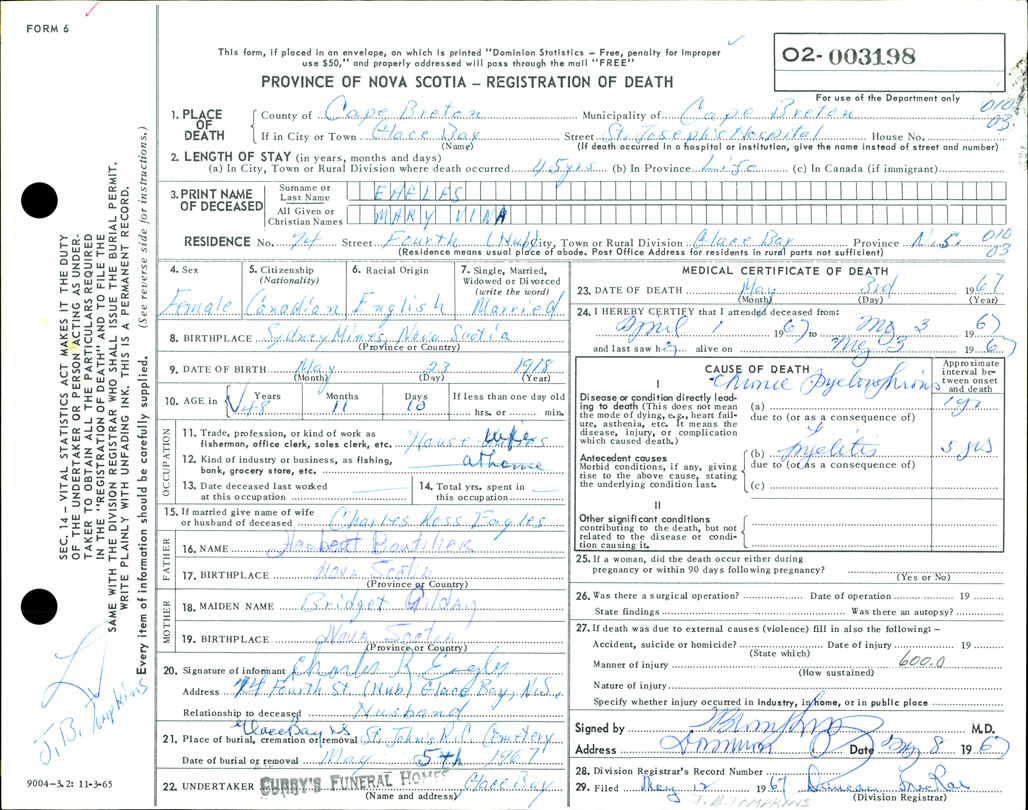 FORM 6
This form, if placed in an envelope, on which is printed "Dominion Statistics – Free, penalty for improper
use $50," and properly addressed will pass through the mail "FREE"
02-003198
PROVINCE OF NOVA SCOTIA – REGISTRATION OF DEATH
For use of the Department only
1. PLACE OF DEATH
County of Cape Breton Municipality of Cape Breton 010
If in City or Town Glace Bay Street St. Joseph's Hospital House No. 03
(Name) (If death occurred in a hospital or institution, give the name instead of street and number)
2. LENGTH OF STAY (in years, months and days)
(a) In City, Town or Rural Division where death occurred 45 yrs (b) In Province Life (c) In Canada (if immigrant)
3. PRINT NAME OF DECEASED
Surname or Last Name
All Given or Christian Names MARY VINA
RESIDENCE No. 74 Street Fourth (Hub) City, Town or Rural Division Glace Bay Province N.S. 010
(Residence means usual place of abode. Post Office Address for residents in rural parts not sufficient) 03
4. Sex Female
5. Citizenship (Nationality) Canadian
6. Racial Origin English
7. Single, Married, Widowed or Divorced (write the word) Married
8. BIRTHPLACE Sydney Mines, Nova Scotia
(Province or Country)
9. DATE OF BIRTH May 23 1918
(Month) (Day) (Year)
10. AGE in Years Months Days If less than one day old
48 11 10 hrs. or min.
OCCUPATION
11. Trade, profession, or kind of work as House wife
fisherman, office clerk, sales clerk, etc.
12. Kind of industry or business, as fishing, at home
bank, grocery store, etc.
13. Date deceased last worked
at this occupation
14. Total yrs. spent in
this occupation
15. If married give name of wife
or husband of deceased Charles Ross Eagles
FATHER
16. NAME Herbert Boutilier
17. BIRTHPLACE Nova Scotia
(Province or Country)
MOTHER
18. MAIDEN NAME Bridget Gilday
19. BIRTHPLACE Nova Scotia
(Province or Country)
20. Signature of informant Charles R. Eagles
Address 74 Fourth St. (Hub) Glace Bay, N.S.
Relationship to deceased Husband
Glace Bay NS
21. Place of burial, cremation or removal St. John's R.C. Cemetery
Date of burial or removal May 5th 1967
22. UNDERTAKER CURRY'S FUNERAL HOME Glace Bay
(Name and address)
MEDICAL CERTIFICATE OF DEATH
23. DATE OF DEATH May 3rd 1967
(Month) (Day) (Year)
24. I HEREBY CERTIFY that I attended deceased from:
April 1 1967 to May 3 1967
and last saw her alive on May 3 1967
CAUSE OF DEATH
Approximate interval between onset and death
I
Disease or condition directly leading to death (This does not mean the mode of dying, e.g., heart failure, asthenia, etc. It means the disease, injury, or complication which caused death.)
Chronic
(a)
due to (or as a consequence of)
Antecedent causes
Morbid conditions, if any, giving rise to the above cause, stating the underlying condition last.
(b) Pyelitis 5 yrs
due to (or as a consequence of)
(c)
II
Other significant conditions
contributing to the death, but not related to the disease or condition causing it.
25. If a woman, did the death occur either during
pregnancy or within 90 days following pregnancy?
(Yes or No)
26. Was there a surgical operation? Date of operation 19
State findings Was there an autopsy?
27. If death was due to external causes (violence) fill in also the following: –
Accident, suicide or homicide? Date of injury 19
(State which)
Manner of injury 600.0
(How sustained)
Nature of injury
Specify whether injury occurred in industry, in home, or in public place
Signed by M.D.
Address Dominion Date May 8 1967
28. Division Registrar's Record Number
29. Filed May 12 1967 Duncan MacRae
(Division Registrar)
J. B. TOMPKINS
SEC. 14 – VITAL STATISTICS ACT MAKES IT THE DUTY
OF THE UNDERTAKER OR PERSON ACTING AS UNDER-
TAKER TO OBTAIN ALL THE PARTICULARS REQUIRED
IN THE "REGISTRATION OF DEATH" AND TO FILE THE
SAME WITH THE DIVISION REGISTRAR WHO SHALL ISSUE THE BURIAL PERMIT.
WRITE PLAINLY WITH UNFADING INK. THIS IS A PERMANENT RECORD.
Every item of information should be carefully supplied. (See reverse side for instructions.)
J. B. Tompkins
9004-3.2: 11-3-65